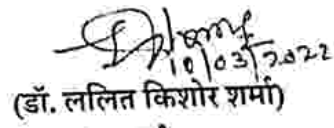 10/03/2022
(डॉ. ललित किशोर शर्मा)